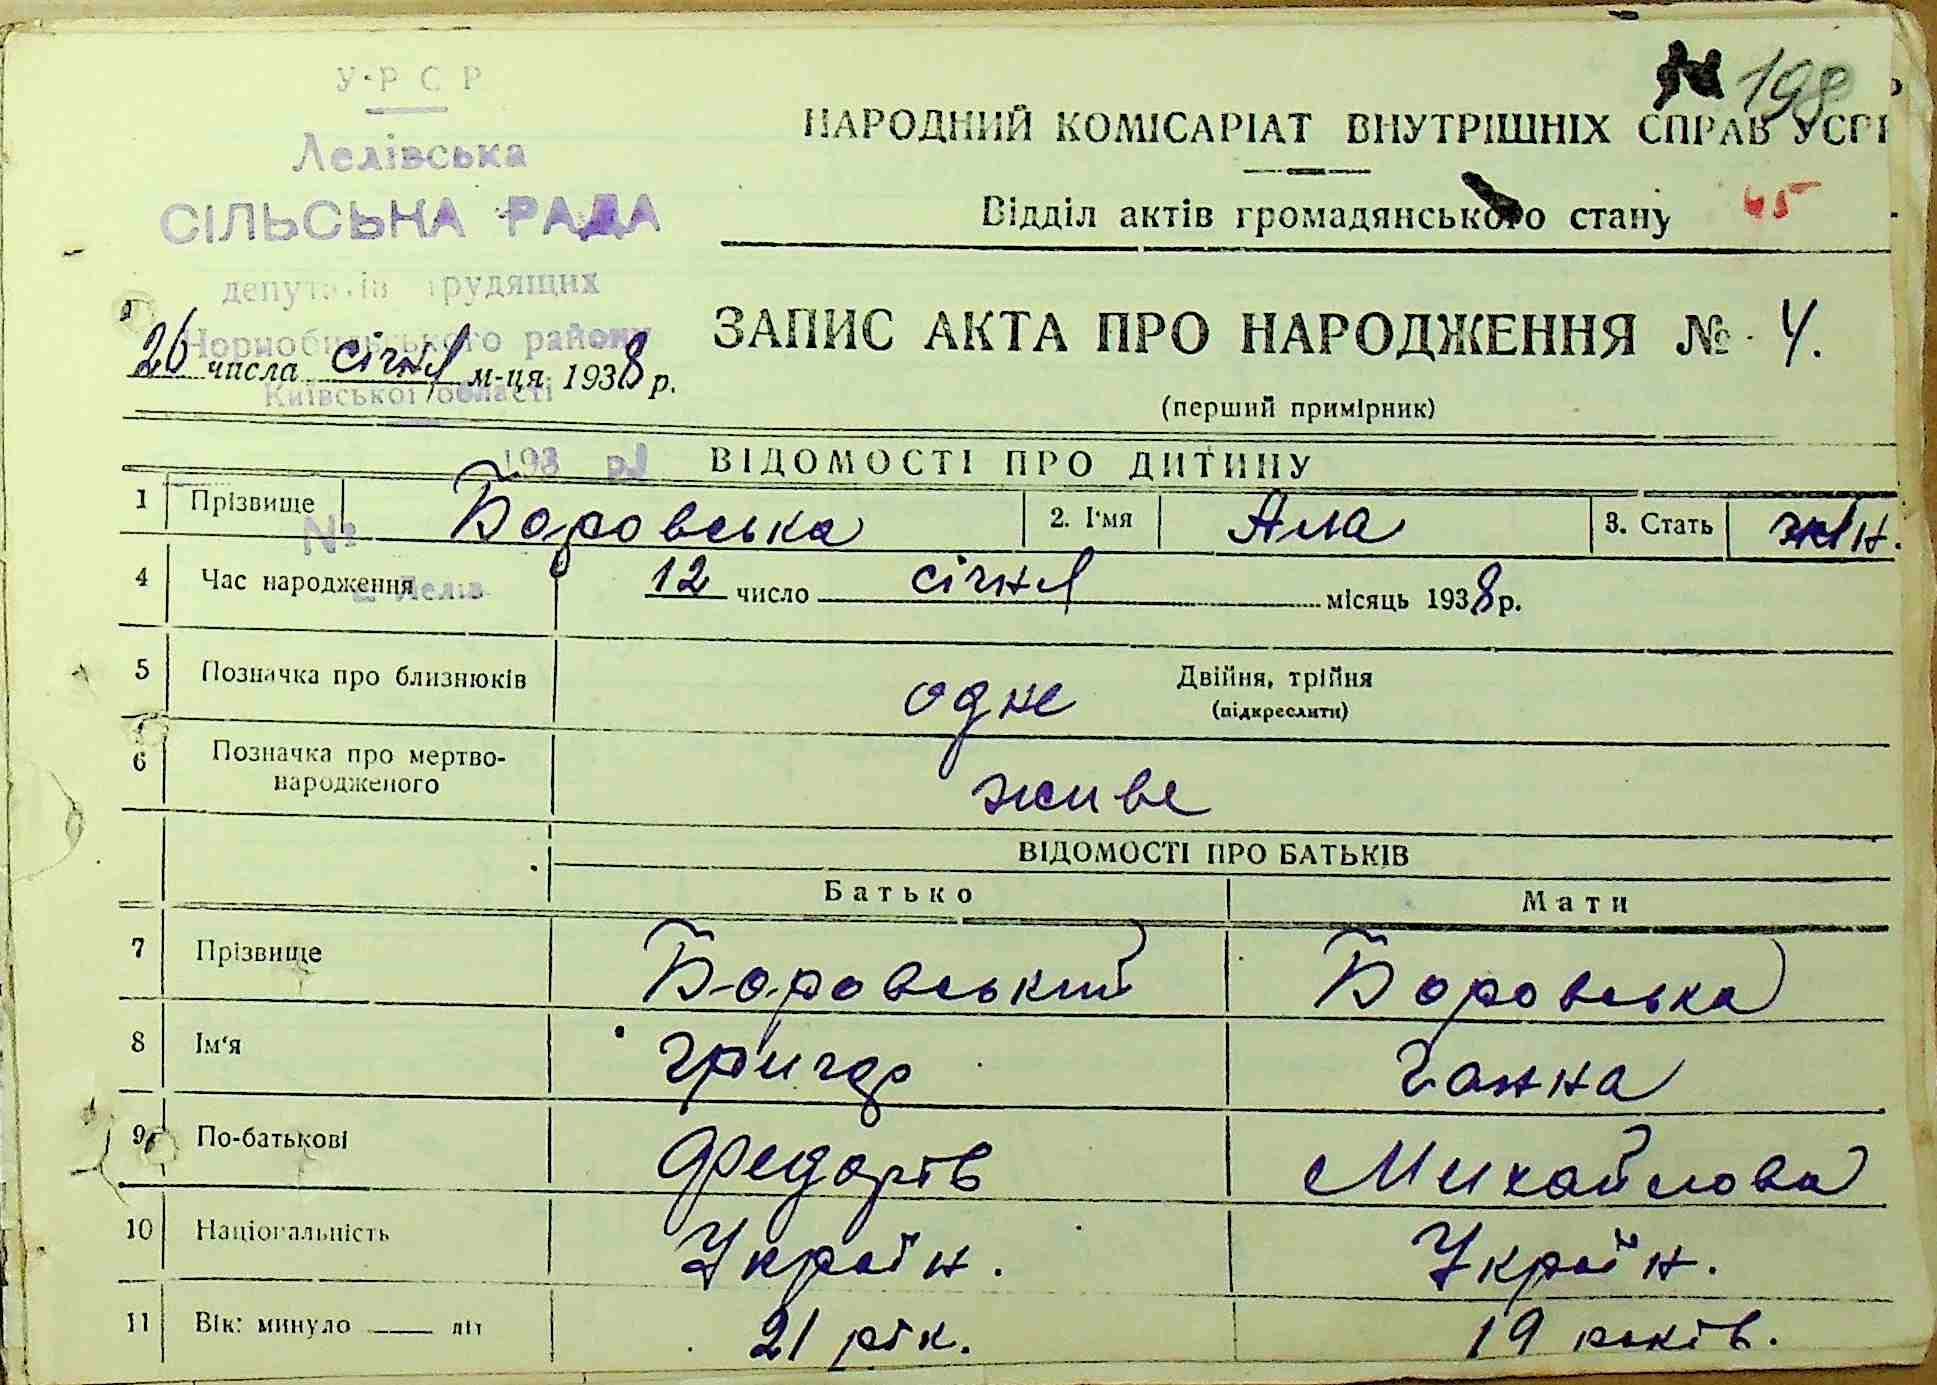 У·Р С Р
Лелівська
СІЛЬСЬКА РАДА
депутатів трудящих
Чорнобильського району
Київської області
193 р.
№
с. Лелів
198
НАРОДНИЙ КОМІСАРІАТ ВНУТРІШНІХ СПРАВ УСРР
Відділ актів громадянського стану
45
26 числа січня м-ця 1938 р.
ЗАПИС АКТА ПРО НАРОДЖЕННЯ № 4.
(перший примірник)
ВІДОМОСТІ ПРО ДИТИНУ
1 Прізвище Боровська 2. І'мя Ала 3. Стать жін.
4 Час народження 12 число січня місяць 1938 р.
5 Позначка про близнюків одне Двійня, трійня
(підкреслити)
6 Позначка про мертво-
народженого живе
ВІДОМОСТІ ПРО БАТЬКІВ
Батько Мати
7 Прізвище Боровський Боровська
8 Ім'я Григор Ганна
9 По-батькові Федорів Михайлова
10 Національність Україн. Україн.
11 Вік: минуло літ 21 рік. 19 років.